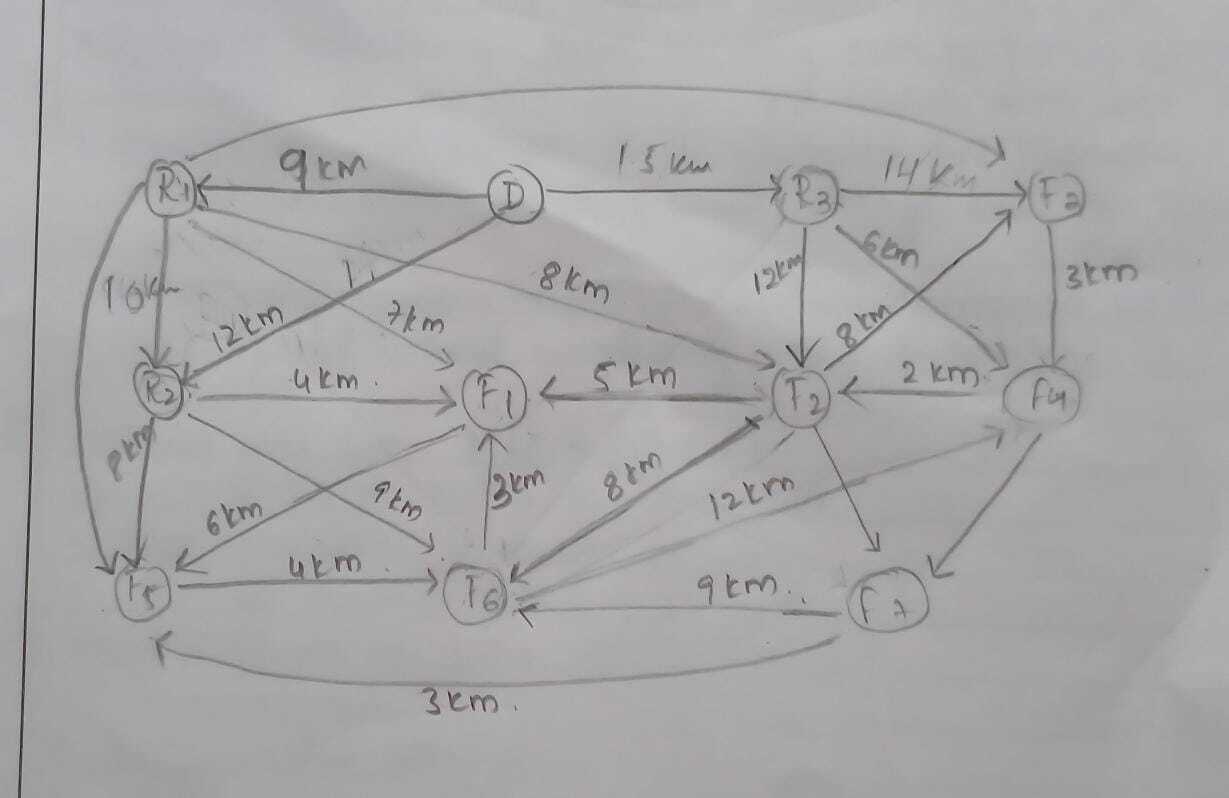 9km
15km
14Km
R1
D
R3
F3
10km
12km
7km
8km
12km
6km
8km
3km
R2
4km.
F1
5km
F2
2km.
F4
8km
6km
9km
3km
8km
12km
F5
4km
F6
9km..
F7
3km.